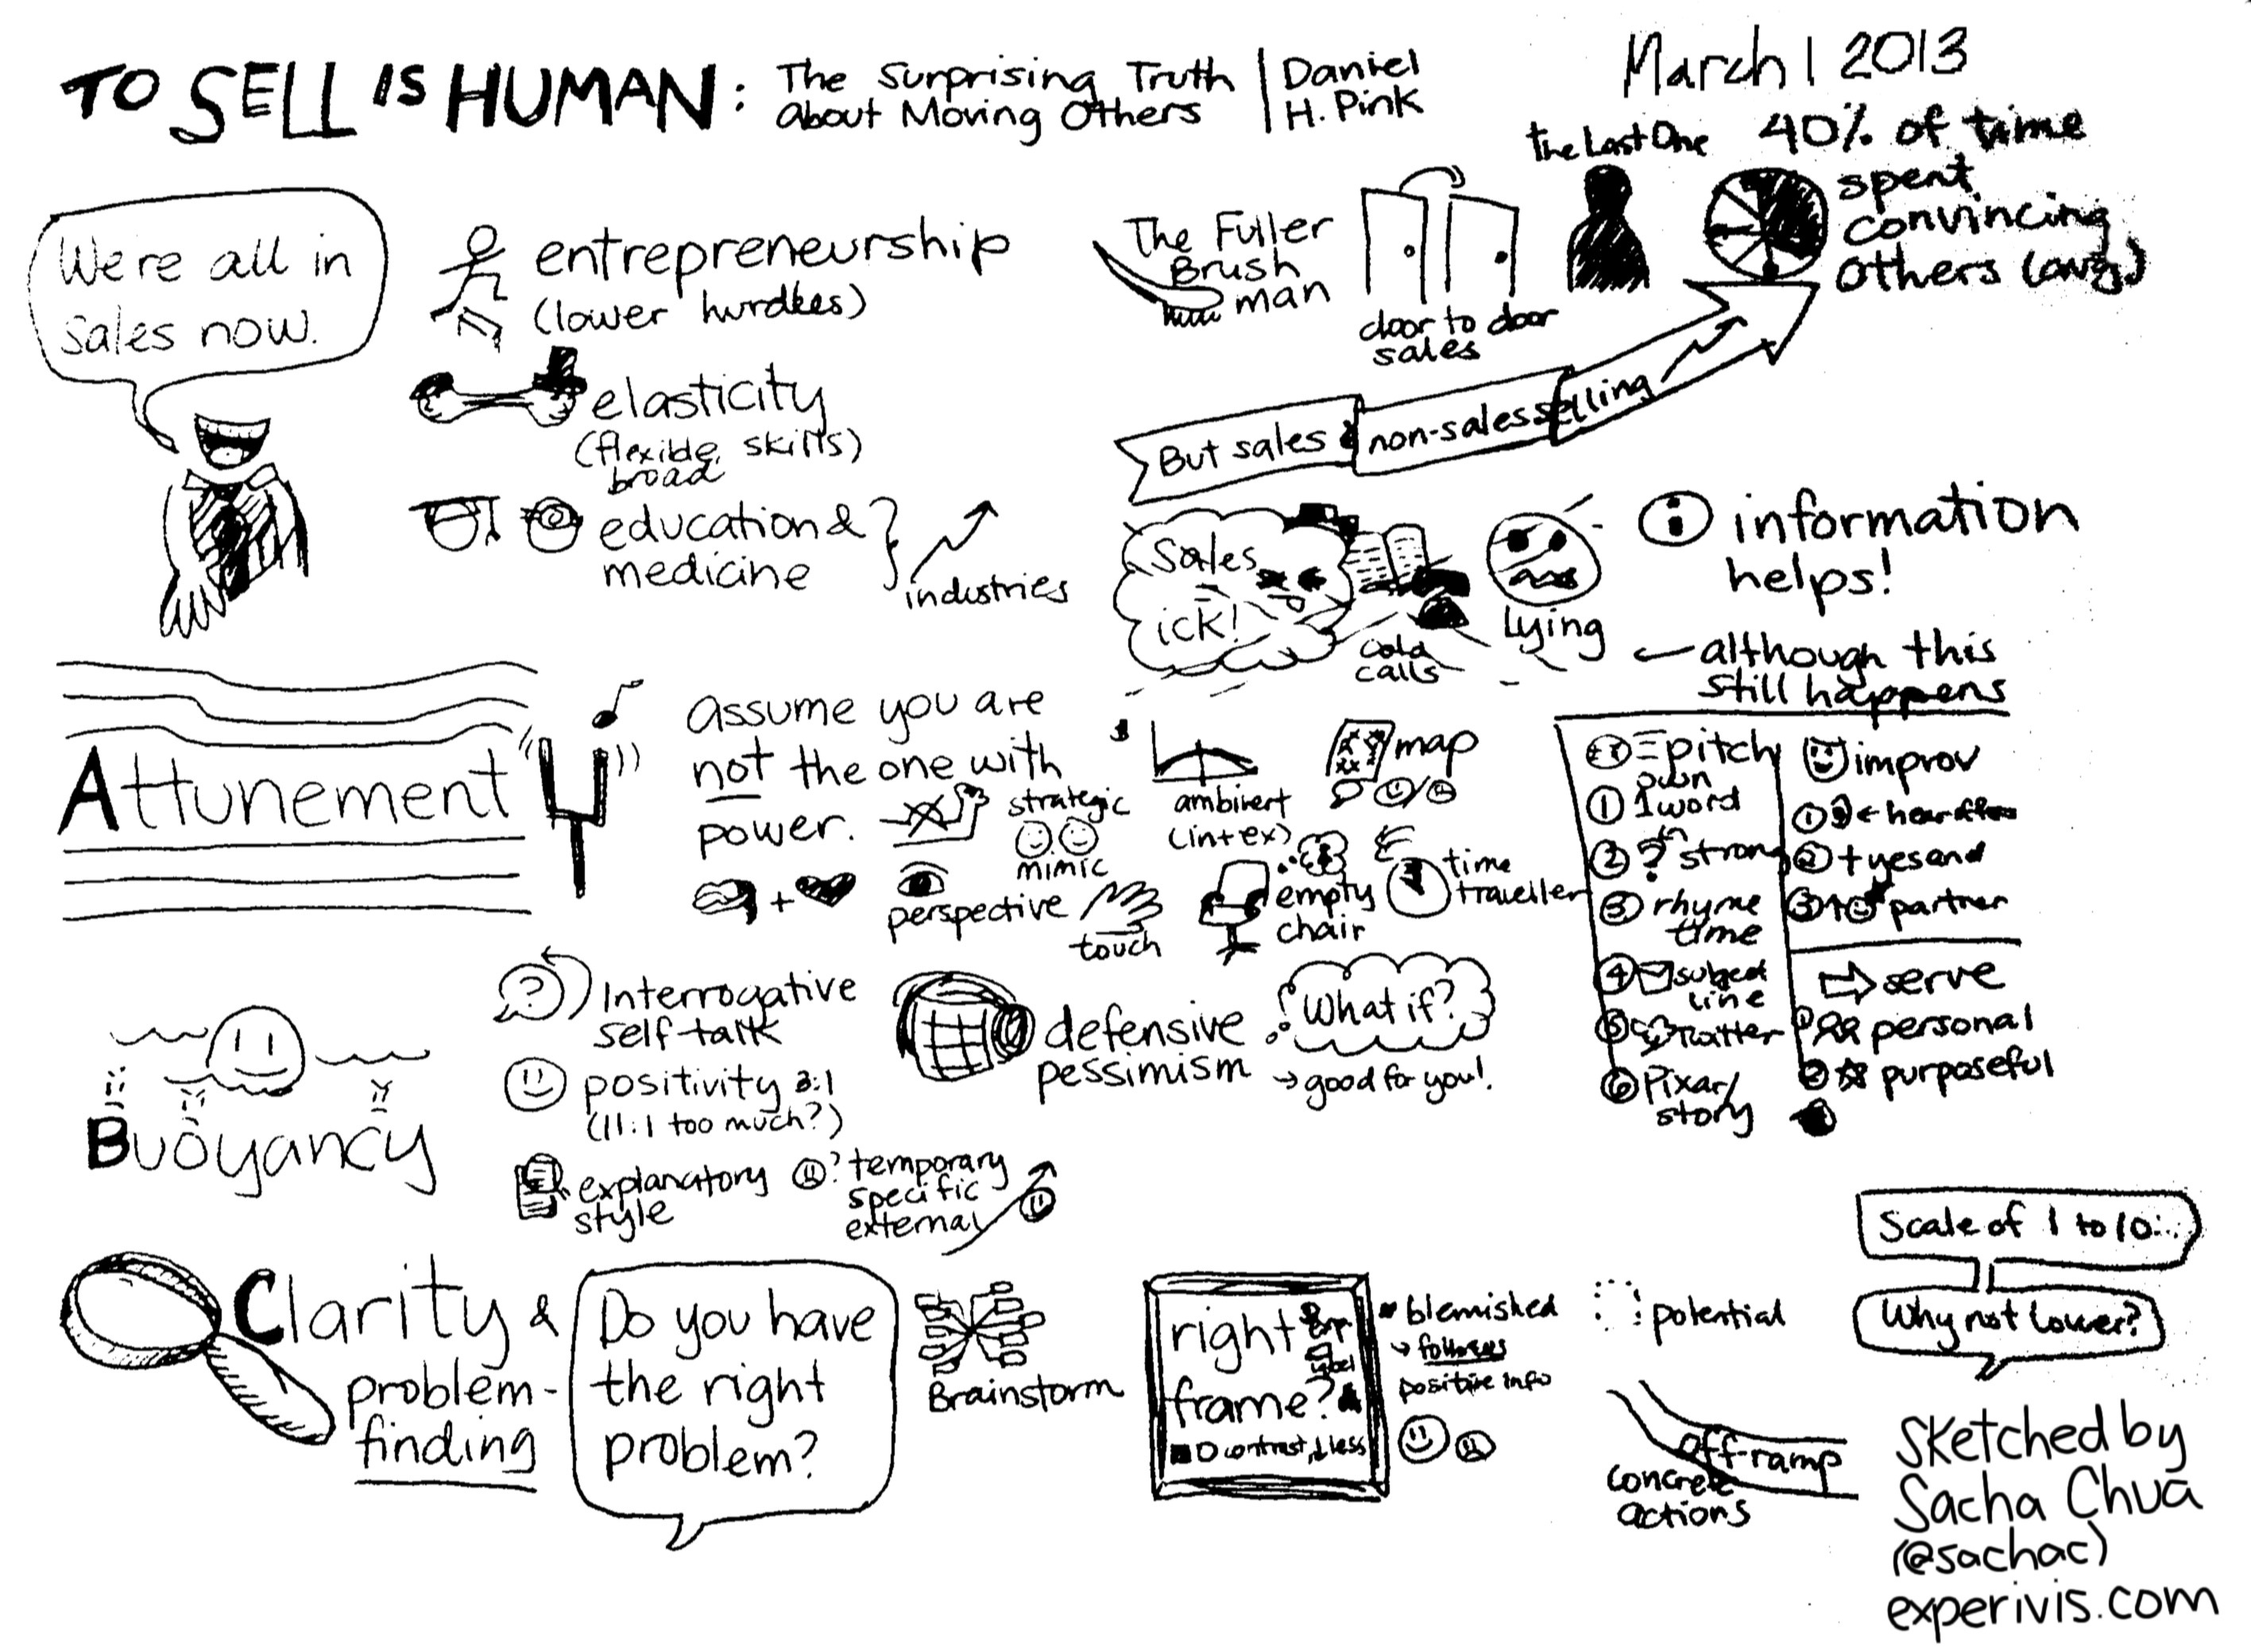 TO SELL IS HUMAN: The Surprising Truth
about Moving Others
Daniel
H. Pink
March 1 2013
We're all in
sales now.
entrepreneurship
(lower hurdles)
elasticity
(flexible, skills)
broad
education &
medicine
industries
The Fuller
Brush
man
door to door
sales
the Last One
40% of time
spent
convincing
others (avg.)
But sales & non-sales selling
Sales
ick!
cold
calls
lying
information
helps!
although this
still happens
Attunement
assume you are
not the one with
power.
strategic
mimic
perspective
touch
$
ambivert
(int ex)
map
empty
chair
time
traveller
pitch
own
1 1 word
2 ? strong
3 rhyme
time
4 subject
line
5 Twitter
6 Pixar/
story
improv
1 hear offers
2 + yes and
3 partner
serve
1 personal
2 purposeful
Buoyancy
? Interrogative
self-talk
positivity 3:1
(11:1 too much?)
explanatory
style
? temporary
specific
external
defensive
pessimism
What if?
→ good for you!
Clarity &
problem-
finding
Do you have
the right
problem?
Brainstorm
right
frame?
exp
label
contrast, ↓ less
blemished
→ follows
positive info
potential
Scale of 1 to 10...
Why not lower?
off-ramp
concrete
actions
Sketched by
Sacha Chua
(@sachac)
experivis.com